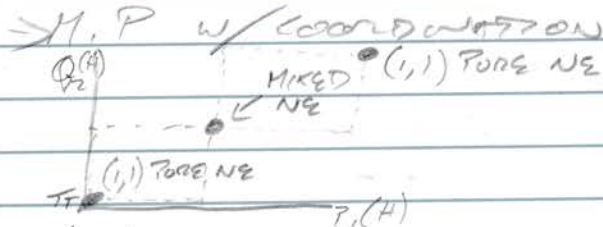 → M.P w/ COORDINATION
Q₂(H)
(1,1) PURE NE
MIXED
NE
(1,1) PURE NE
TT
P₁(H)